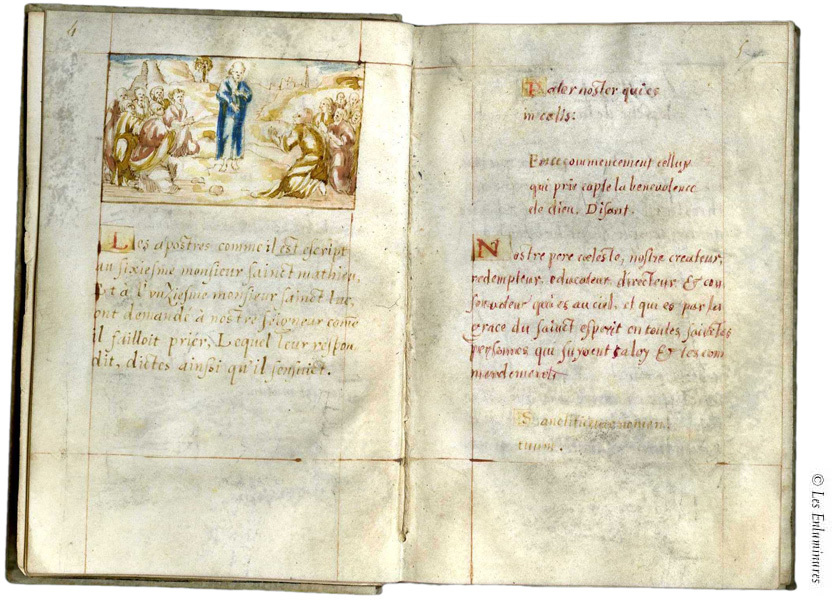 4
Les apostres comme il est escript
au sixiesme monsieur sainct mathieu,
Et a l'unziesme monsieur sainct luc,
ont demandé à nostre seigneur come
il failloit prier, Lequel leur respon
dit, dictes ainsi qu'il sensuict.
5
Pater noster qui es
in cœlis:
Est ce commencement celluy
qui prie capte la benevolence
de dieu. Disant.
Nostre pere cœleste, nostre createur,
redempteur, educateur, directeur, Et con
solateur qui es au ciel, et qui es par la
grace du sainct esperit en toutes sainctes
personnes qui suyvent ta loy Et les com
mandements
Sanctificetur nomen
tuum.
© Les Enluminures